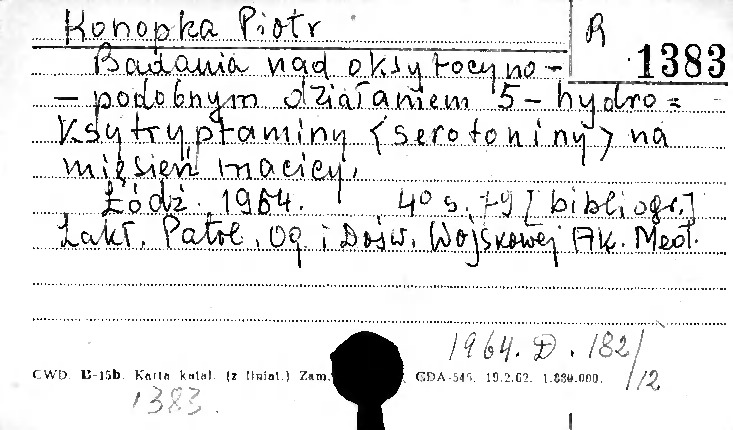 Konopka Piotr
R 1383
Badania nad oksytocyno-
-podobnym działaniem 5-hydro=
ksytryptaminy <serotoniny> na
mięsień macicy.
Łódź. 1964. 4º s. 79 [bibliogr.]
Zakł. Patol. Og. i Dośw. Wojskowej Ak. Med.
1964. D. 182/12
CWD. B-15b. Karta katal. (z liniat.) Zam. GDA-545. 19.2.62. 1.880.000.
1383.